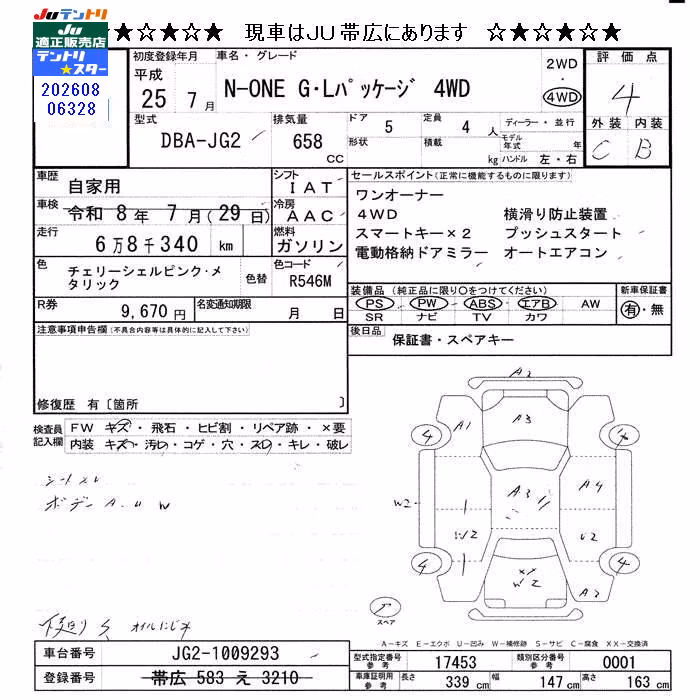 JUテントリ
JU
適正販売店
テントリ
★スター
202608
06328
★☆★☆★ 現車はJU帯広にあります ☆★☆★☆★
初度登録年月
平成
25 7 月
車名・グレード
N-ONE G・Lパッケージ 4WD
2WD
4WD
評価点
4
外装 内装
C B
型式
DBA-JG2
排気量
658
CC
ドア
5
定員
4 人
形状
積載
kg
ディーラー・並行
モデル年式 年
ハンドル 左・右
車歴
自家用
車検
令和 8 年 7 月(29 日)
走行
6万8千340 km
シフト
IAT
冷房
AAC
燃料
ガソリン
セールスポイント(正常に機能するものに限ります)
ワンオーナー
4WD 横滑り防止装置
スマートキー×2 プッシュスタート
電動格納ドアミラー オートエアコン
色
チェリーシェルピンク・メ
タリック
色替
色コード
R546M
装備品(純正品に限り○をつけてください)
PS PW ABS エアB AW
SR ナビ TV カワ
新車保証書
有・無
R券
9,670 円
名変通知期限
月 日
後日品
保証書・スペアキー
注意事項申告欄(不具合内容等は具体的に記入して下さい)
修復歴 有〔箇所 〕
検査員
記入欄
FW キズ・飛石・ヒビ割・リペア跡・×要
内装 キズ・汚れ・コゲ・穴・スレ・キレ・破レ
シートスレ
ボデーA.U W
下廻りS オイルにじみ
A2
A1
A3
4
4
W2
A3
A4
W2
U2
4
4
XX
W2
A2
スペア
A-キズ E-エクボ U-凹み W-補修跡 S-サビ C-腐食 XX-交換済
車台番号
JG2-1009293
登録番号
帯広 583 え 3210
型式指定番号
参考
17453
類別区分番号
参考
0001
車庫証明用
参考
長さ 339 cm 幅 147 cm 高さ 163 cm